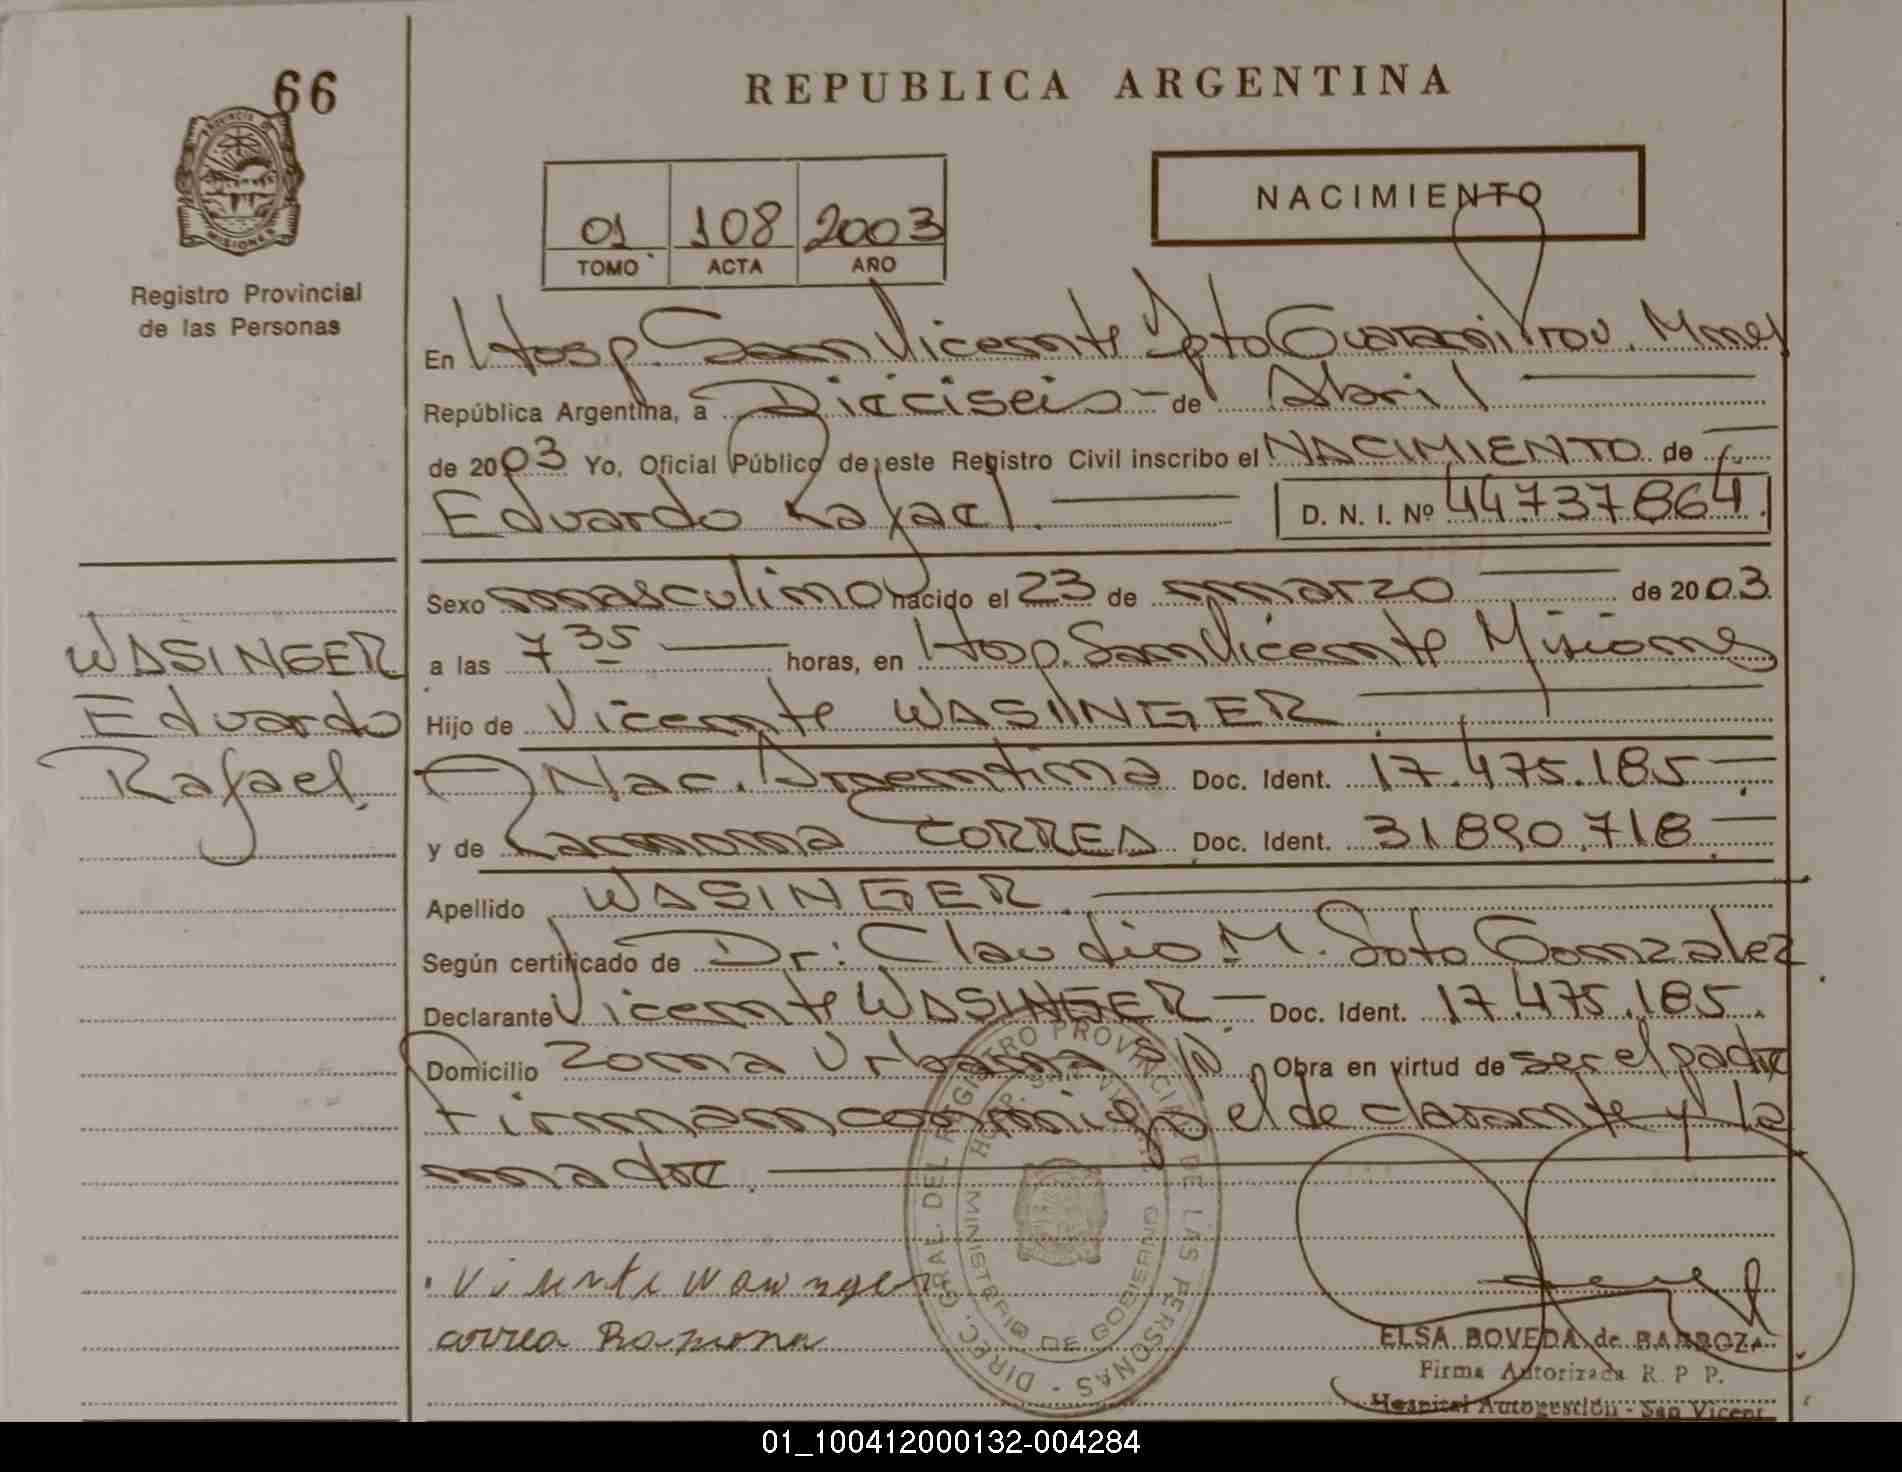 66
PROVINCIA DE
MISIONES
Registro Provincial
de las Personas
REPUBLICA ARGENTINA
01 108 2003
TOMO ACTA AÑO
NACIMIENTO
En Hosp. San Vicente Dpto Guarani Prov. Mnes
República Argentina, a Dieciseis de Abril
de 2003 Yo, Oficial Público de este Registro Civil inscribo el NACIMIENTO de
Eduardo Rafael. D. N. I. Nº 44737864.
Sexo masculino nacido el 23 de marzo de 2003.
a las 7 35 horas, en Hosp. San Vicente Misiones
Hijo de Vicente WASINGER
Nac. Argentina Doc. Ident. 17.475.185
y de Ramona CORREA Doc. Ident. 31.890.718
Apellido WASINGER
Según certificado de Dr: Claudio M. Soto Gonzalez
Declarante Vicente WASINGER Doc. Ident. 17.475.185.
Domicilio Zona Urbana S/N Obra en virtud de ser el padre
Firman conmigo el declarante y la
madre.
WASINGER
Eduardo
Rafael.
Vicente Wasinger
correa Ramona
DIREC. GRAL. DEL REGISTRO PROVINCIAL DE LAS PERSONAS
HOSP. SAN VICENTE
MINISTERIO DE GOBIERNO
ELSA BOVEDA de BARBOZA
Firma Autorizada R. P. P.
Hospital Autogestión - San Vicent
01_100412000132-004284